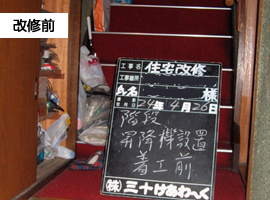 改修前
工事名 住宅改修
工事箇所
氏名 様
24年4月26日
階段
昇降機設置
着工前
㈱三十けあわーく